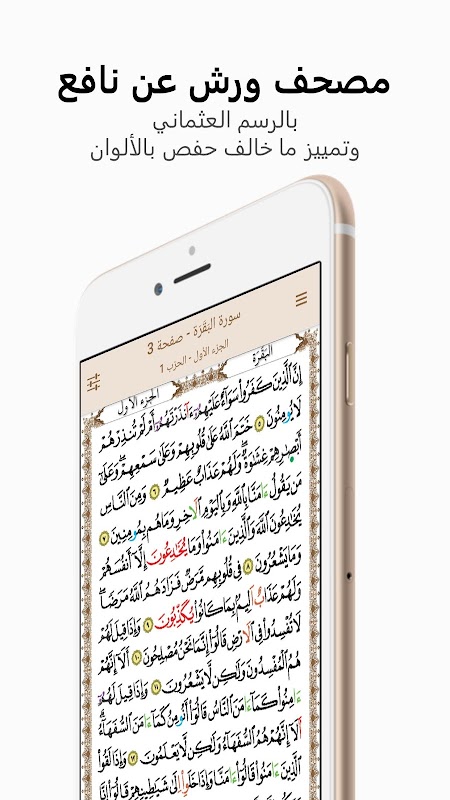 مصحف ورش عن نافع
بالرسم العثماني
وتمييز ما خالف حفص بالألوان
سورة البَقَرَة - صفحة 3
الجزء الأول - الحزب 1
البَقَرَة
الجزء الأول
إِنَّ ٱلَّذِينَ كَفَرُوا۟ سَوَآءٌ عَلَيْهِمُۥٓ ءَآنذَرْتَهُمُۥٓ أَمْ لَمْ تُنذِرْهُمْ
لَا يُومِنُونَ ٥ خَتَمَ ٱللَّهُ عَلَىٰ قُلُوبِهِمْ وَعَلَىٰ سَمْعِهِمْ وَعَلَىٰٓ
أَبْصٰرِهِمْ غِشَٰوَةٌ وَلَهُمْ عَذَابٌ عَظِيمٌ ٦ وَمِنَ ٱلنَّاسِ
مَنْ يَّقُولُ ءَامَنَّا بِاللَّهِ وَبِالْيَوْمِ ٱلَاخِرِ وَمَا هُم بِمُومِنِينَ ٧
يُخَٰدِعُونَ ٱللَّهَ وَٱلَّذِينَ ءَامَنُوا۟ وَمَا يُخَٰدِعُونَ إِلَّآ أَنفُسَهُمْ
وَمَا يَشْعُرُونَ ٨ فِى قُلُوبِهِم مَّرَضٌ فَزَادَهُمُ ٱللَّهُ مَرَضًا
وَلَهُمْ عَذَابٌ أَلِيمٌ بِمَا كَانُوا۟ يُكَذِّبُونَ ٩ وَإِذَا قِيلَ لَهُمْ
لَا تُفْسِدُوا۟ فِى ٱلَارْضِ قَالُوٓا۟ إِنَّمَا نَحْنُ مُصْلِحُونَ ١٠ أَلَآ إِنَّهُمْ
هُمُ ٱلْمُفْسِدُونَ وَلَٰكِن لَّا يَشْعُرُونَ ١١ وَإِذَا قِيلَ لَهُمُۥٓ
ءَامِنُوا۟ كَمَآ ءَامَنَ ٱلنَّاسُ قَالُوٓا۟ أَنُومِنُ كَمَآ ءَامَنَ ٱلسُّفَهَآءُ
أَلَآ إِنَّهُمْ هُمُ ٱلسُّفَهَآءُ وَلَٰكِن لَّا يَعْلَمُونَ ١٢ وَإِذَا لَقُوا۟
ٱلَّذِينَ ءَامَنُوا۟ قَالُوٓا۟ ءَامَنَّا وَإِذَا خَلَوِا۟ الَىٰ شَيَٰطِينِهِمْ قَالُوٓا۟ إِنَّا